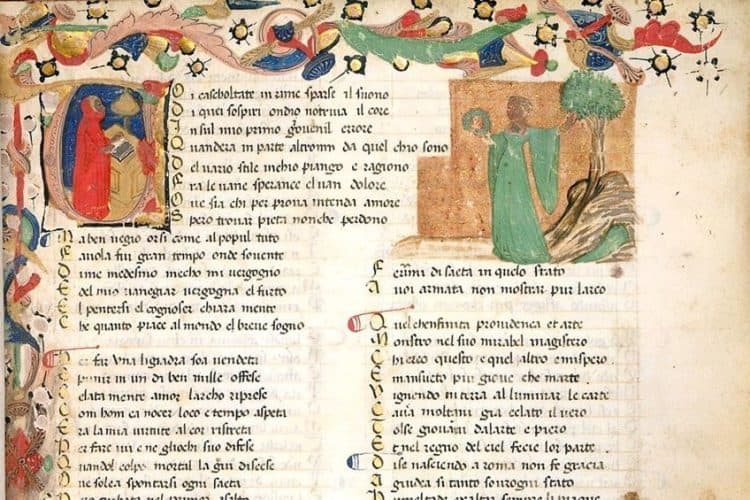 Oi cascholtate in rime sparse il suono
Di quei sospiri ondio notriva il core
In sul mio primo giovenil errore
Quandera in parte altromm da quel chio sono
Del vario stile inchio piango e ragiono
Fra le vane speranze el van dolore
Ove sia chi per prova intenda amore
Spero trovar pieta nonche perdono
Ma ben vegio orsi come al popul tuto
Favola fui gran tempo onde sovente
Di me medesmo mecho mi vergogno
E del mio vanegiar vergogna el furto
El pentersi el cognoser chiara mente
Che quanto piace al mondo el breve sogno
Per far una ligiadra soa vendeta
Punir in un di ben mille offese
Celata mente amor larcho riprese
Com hom ca nocer loco e tempo aspeta
Era la mia virute al cor ristreta
Per fare ivi e ne gliochi sue difese
Quandol colpo mortal la giu discese
Ove solea spontarsi ogni saeta
Ferirmi di saeta in quelo stato
A voi armata non mostrar pur larco
Quel chenfinita providenca et arte
Monstro nel suo mirabel magistero
Chi creo questo e quel altro emispero
E mansueto piu giove che marte
Vignendo in terra al luminar le carte
Cavia moltani gia celato il vero
Tolse giovani dalarte e piero
Et nel regno del ciel fecie lor parte
Di se nascendo a roma non fe gracia
A giudea si tanto sovrogni stato